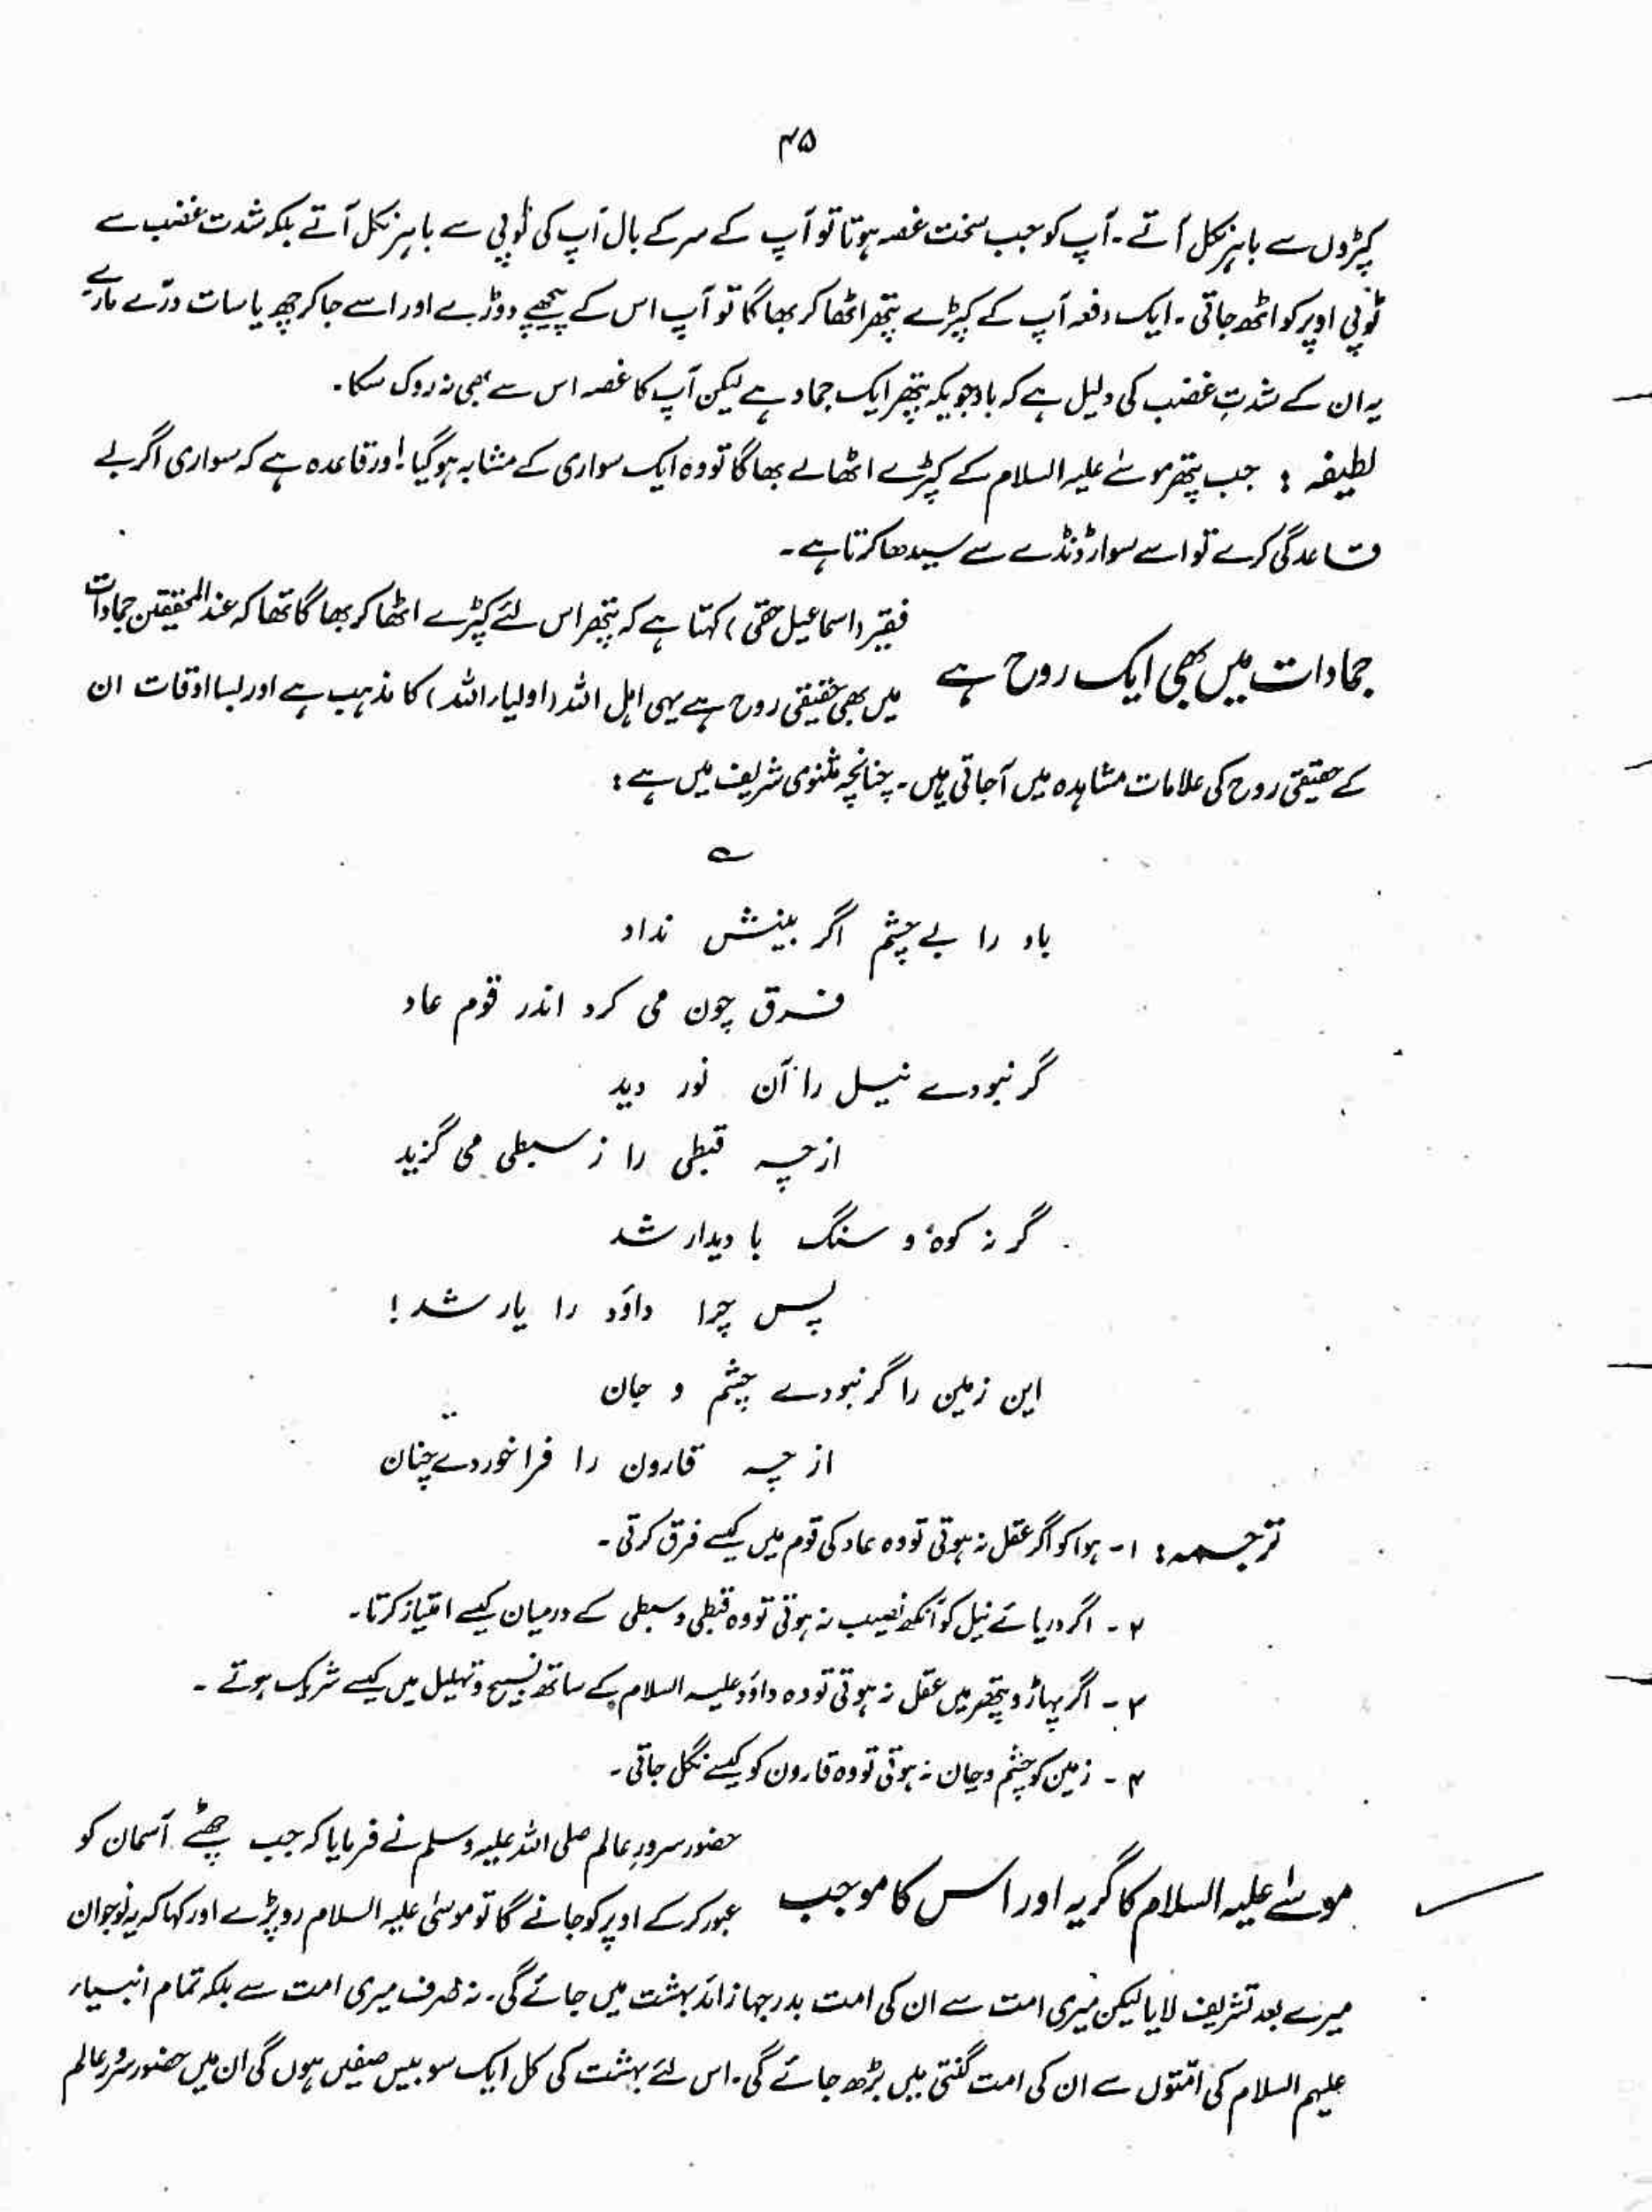 ۴۵
کپڑوں سے باہر نکل آتے ۔ آپ کو جب سخت غصہ ہوتا تو آپ کے سر کے بال آپ کی ٹوپی سے باہر نکل آتے بلکہ شدت غضب سے
ٹوپی اوپر کو اٹھ جاتی ۔ ایک دفعہ آپ کے کپڑے پتھر اٹھا کر بھاگا تو آپ اس کے پیچھے دوڑے اور اسے جا کر چھ یا سات درّے مارے
یہ ان کے شدتِ غضب کی دلیل ہے کہ باوجویکہ پتھر ایک جماد ہے لیکن آپ کا غصہ اس سے بھی نہ روک سکا ۔
لطیفہ : جب پتھر موسٰے علیہ السلام کے کپڑے اٹھالے بھاگا تو وہ ایک سواری کے مشابہ ہوگیا ! اور قاعدہ ہے کہ سواری اگر بے
قاعدگی کرے تو اسے سوار ڈنڈے سے سیدھا کرتا ہے ۔
جمادات میں بھی ایک روح ہے
فقیر (اسماعیل حقی) کہتا ہے کہ پتھر اس لئے کپڑے اٹھا کر بھاگا تھا کہ عند المحققین جمادات
میں بھی حقیقی روح ہے یہی اہل اللہ (اولیاء اللہ) کا مذہب ہے اور بسا اوقات ان
کے حقیقی روح کی علامات مشاہدہ میں آجاتی ہیں ۔ چنانچہ مثنوی شریف میں ہے :
؎
باد را بے چشم اگر بینش نداد
فرق چون می کرد اندر قوم عاد
گر نبودے نیل را آن نور دید
از چہ قبطی را ز سبطی می گزید
گر نہ کوہ و سنگ با دیدار شد
پس چرا داؤد را یار شد !
این زمین را گر نبودے چشم و جان
از چہ قارون را فرا خوردے چنان
ترجمہ : ۱ - ہوا کو اگر عقل نہ ہوتی تو وہ عاد کی قوم میں کیسے فرق کرتی ۔
۲ - اگر دریائے نیل کو آنکھ نصیب نہ ہوتی تو وہ قبطی و سبطی کے درمیان کیسے امتیاز کرتا ۔
۳ - اگر پہاڑ و پتھر میں عقل نہ ہوتی تو وہ داؤد علیہ السلام کے ساتھ تسبیح و تہلیل میں کیسے شریک ہوتے ۔
۴ - زمین کو چشم و جان نہ ہوتی تو وہ قارون کو کیسے نگل جاتی ۔
موسٰے علیہ السلام کا گریہ اور اس کا موجب
حضور سرورِ عالم صلی اللہ علیہ وسلم نے فرمایا کہ جب چھٹے آسمان کو
عبور کرکے اوپر کو جانے لگا تو موسٰی علیہ السلام رو پڑے اور کہا کہ یہ نوجوان
میرے بعد تشریف لایا لیکن میری امت سے ان کی امت بدرجہا زائد بہشت میں جائے گی ۔ نہ صرف میری امت سے بلکہ تمام انبیاء
علیہم السلام کی امّتوں سے ان کی امت گنتی میں بڑھ جائے گی ۔ اس لئے بہشت کی کل ایک سو بیس صفیں ہوں گی ان میں حضور سرور عالم